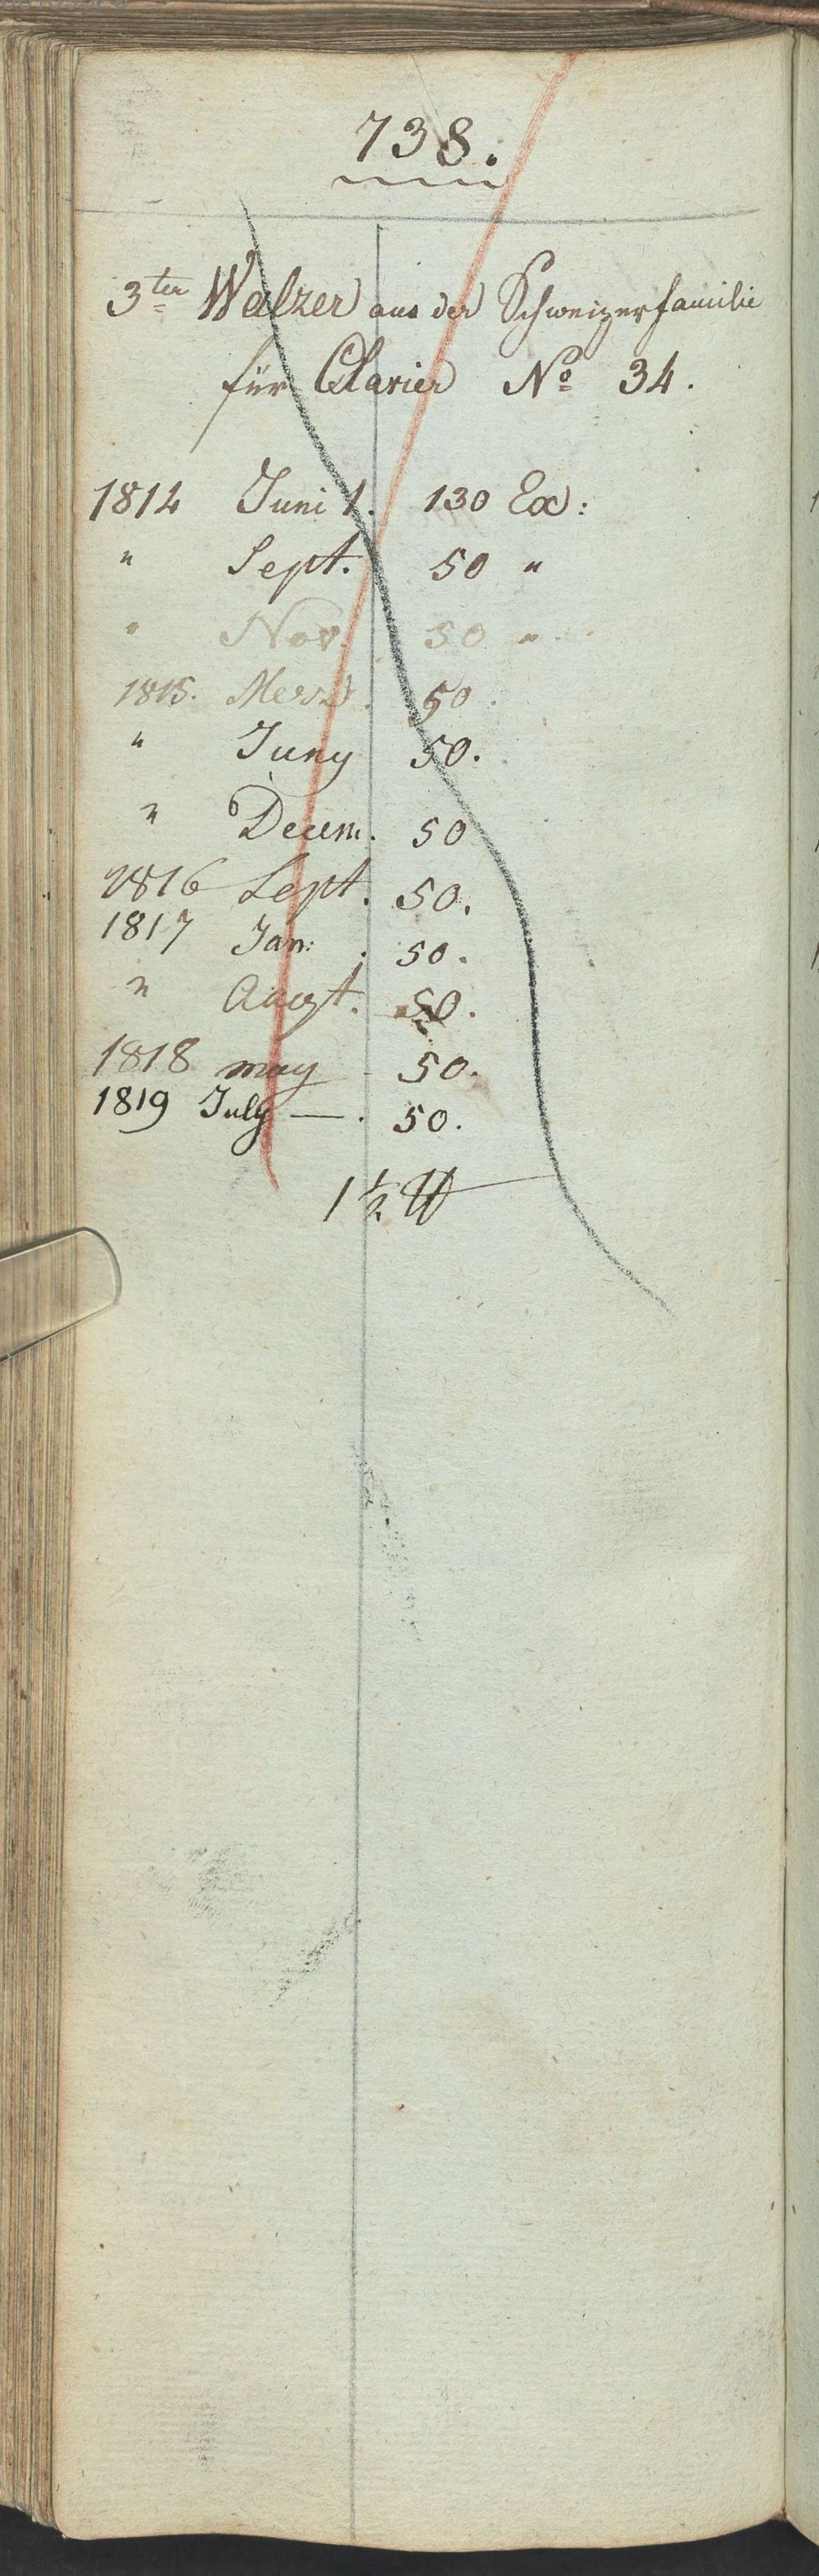 738.
3ter Walzer aus der Schweizerfamilie
für Clavier No 34.
1814 Juni 1. 130 Ex:
" Sept. 50 "
" Nov. 50 "
1815. Merz. 50.
" Juny 50.
" Decem. 50
1816 Sept. 50.
1817 Jan: . 50.
" Augt. 50.
1818 may - 50.
1819 July — . 50.
1 1/2